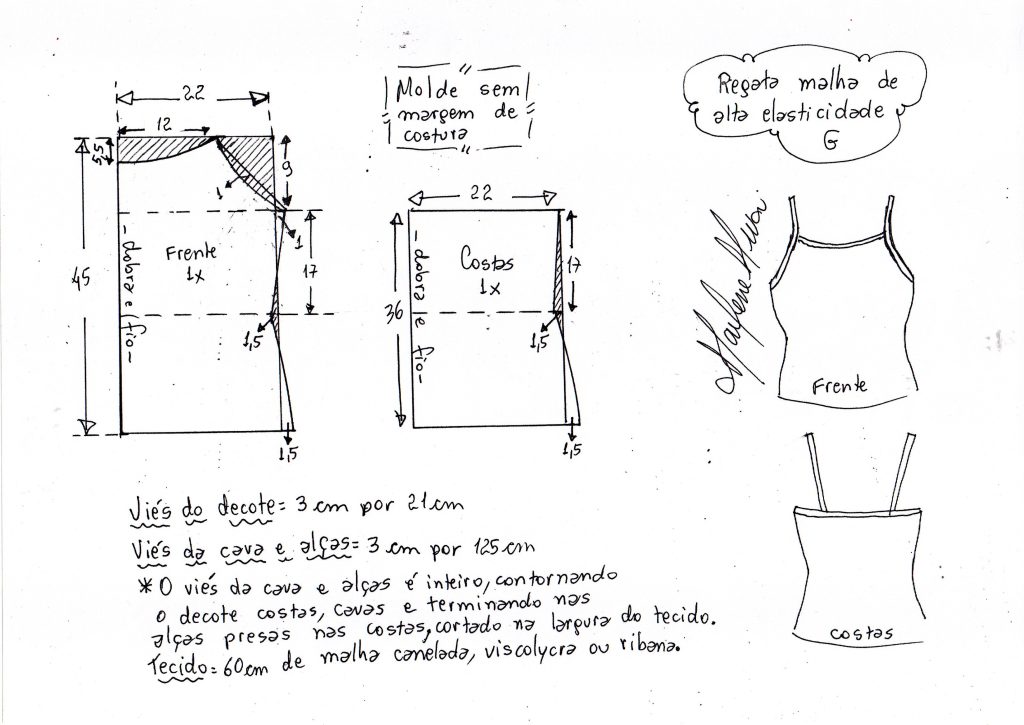 22
12
5,5
9
1
1
45
Frente
1x
17
-dobra e fio-
1,5
1,5
Molde sem
margem de
costura
22
Costas
1x
17
36
-dobra e fio-
1,5
1,5
Regata malha de
alta elasticidade
G
Marlene Mukai
Frente
costas
Viés do decote= 3 cm por 21 cm
Viés da cava e alças= 3 cm por 125 cm
*O viés da cava e alças é inteiro, contornando
o decote costas, cavas e terminando nas
alças presas nas costas, cortado na largura do tecido.
Tecido= 60cm de malha canelada, viscolycra ou ribana.